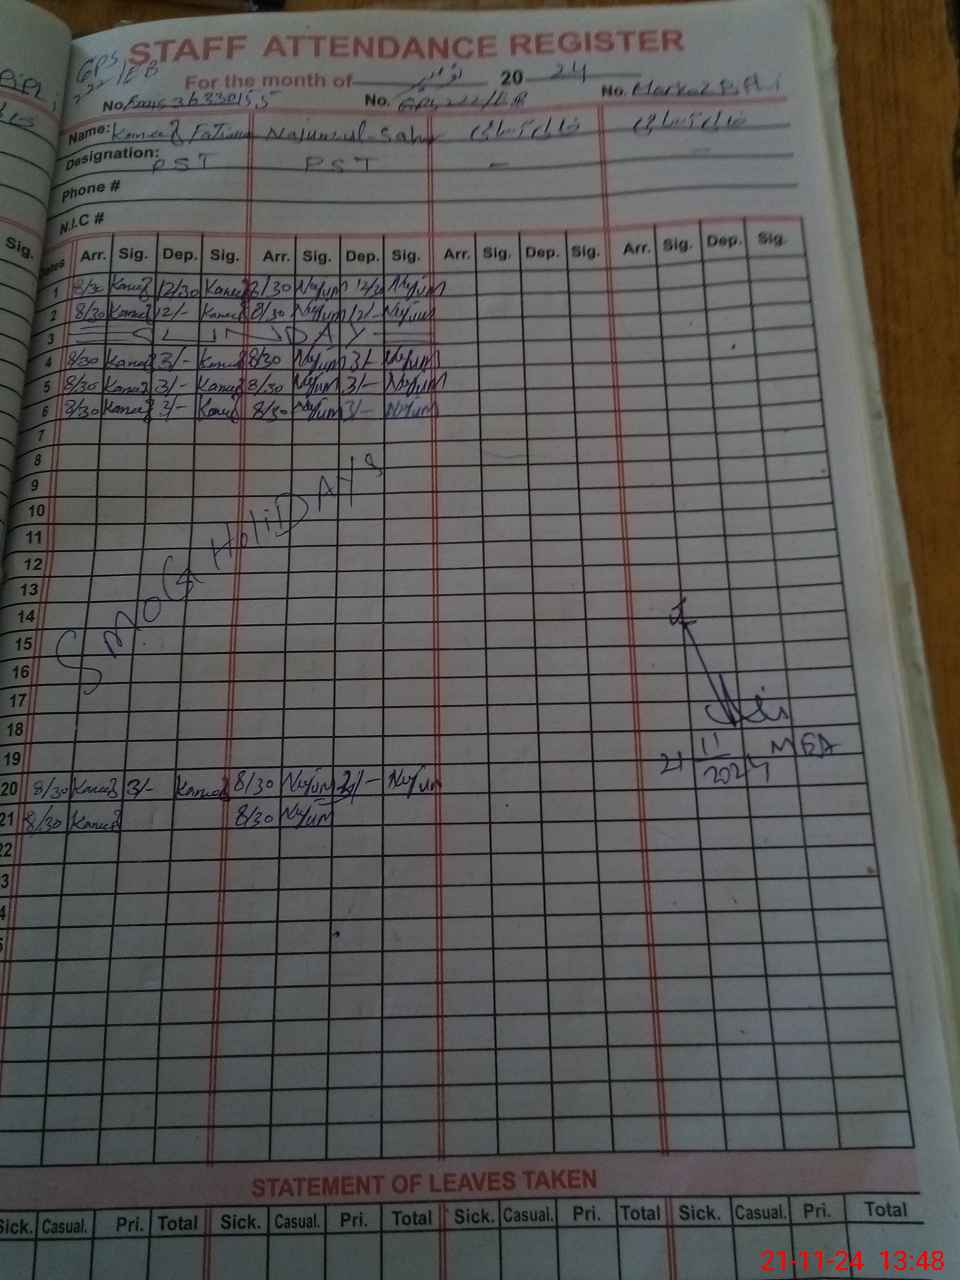 STAFF ATTENDANCE REGISTER
GPS
222/EB
For the month of نومبر 2024
No. No. GPS 222/EB No. Markaz
Name: Kaneez Fatima Najum ul Sahr خالی آسامی خالی آسامی
Designation: PST PST – –
Phone #
N.I.C #
Sig. Dates Arr. Sig. Dep. Sig. Arr. Sig. Dep. Sig. Arr. Sig. Dep. Sig. Arr. Sig. Dep. Sig.
1 8/30 Kaneez 12/30 Kaneez 8/30 Najum 12/30 Najum
2 8/30 Kaneez 12/- Kaneez 8/30 Najum 12/- Najum
3 SUNDAY
4 8/30 Kaneez 3/- Kaneez 8/30 Najum 3/- Najum
5 8/30 Kaneez 3/- Kaneez 8/30 Najum 3/- Najum
6 8/30 Kaneez 3/- Kaneez 8/30 Najum 3/- Najum
7
8
9
10
11
12
13
14
15
16
SMOG HOLIDAYS
17
18
19
21 11 2024 MEA
20 8/30 Kaneez 3/- Kaneez 8/30 Najum 3/- Najum
21 8/30 Kaneez 8/30 Najum
22
3
4
5
STATEMENT OF LEAVES TAKEN
Sick. Casual. Pri. Total Sick. Casual. Pri. Total Sick. Casual. Pri. Total Sick. Casual. Pri. Total
21-11-24 13:48